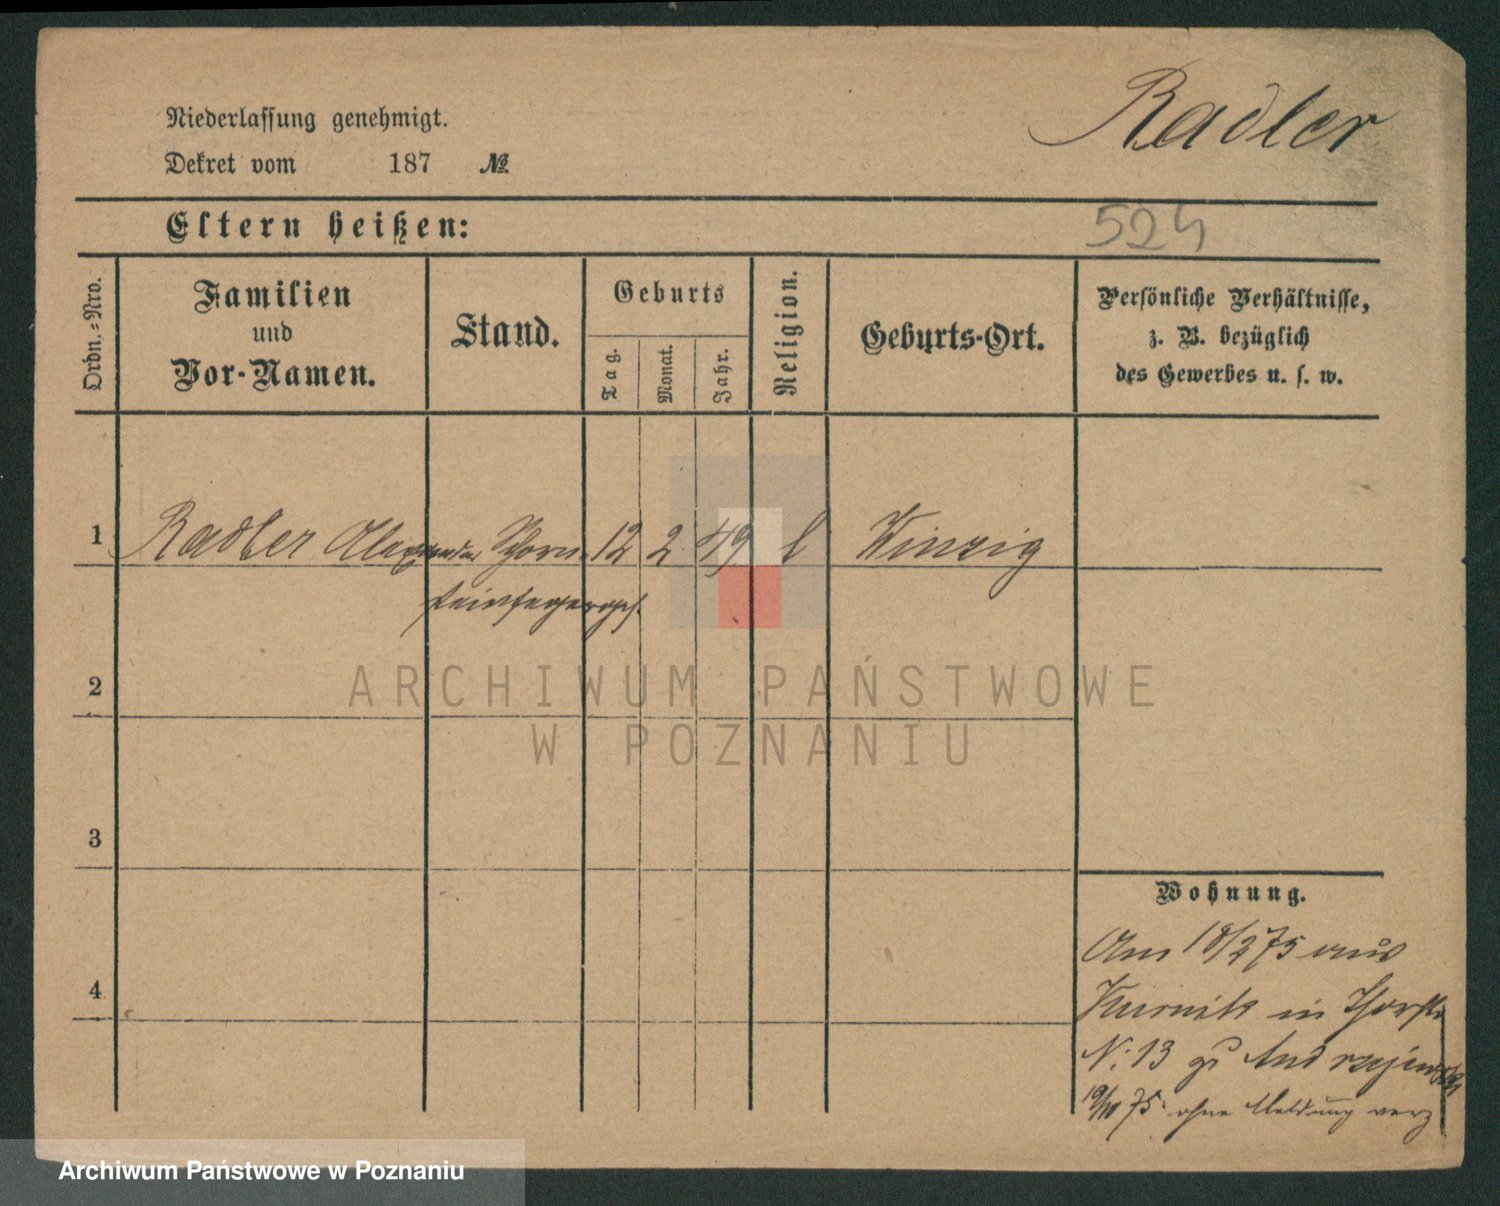 Radler
Niederlassung genehmigt.
Dekret vom 187 №
Eltern heißen:
524
Ordn.=Nro.
Familien
und
Vor-Namen.
Stand.
Geburts
Tag.
Monat.
Jahr.
Religion.
Geburts-Ort.
Persönliche Verhältnisse,
z. B. bezüglich
des Gewerbes u. s. w.
1 Radler Alexander Schorn- 12 2 49 l Winzig
steinfegergeh.
2
ARCHIWUM PAŃSTWOWE
W POZNANIU
3
Wohnung.
Am 18/2 75 aus
Kurnik in Thorstr
4
N: 13 zu Andrzejewski
19/10 75 ohne Meldung verz
Archiwum Państwowe w Poznaniu